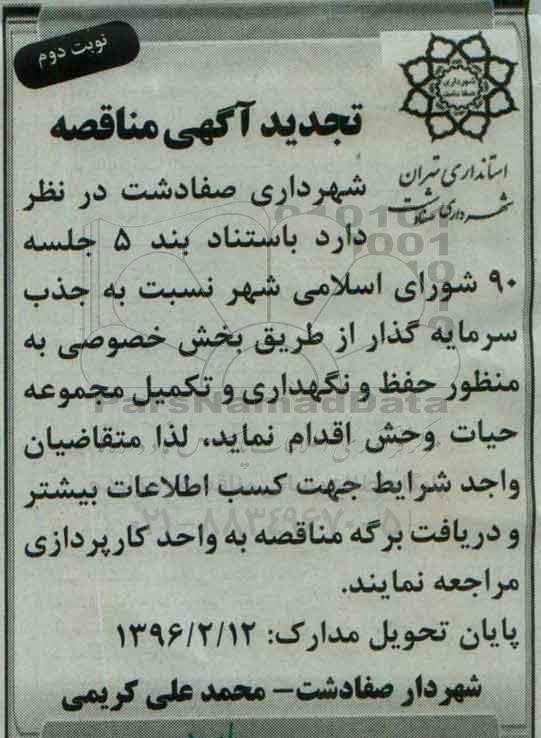 نوبت دوم
شهرداری
صفادشت
استانداری تهران
شهرداری صفادشت
تجدید آگهی مناقصه
شهرداری صفادشت در نظر
دارد باستناد بند ۵ جلسه
۹۰ شورای اسلامی شهر نسبت به جذب
سرمایه گذار از طریق بخش خصوصی به
منظور حفظ و نگهداری و تکمیل مجموعه
حیات وحش اقدام نماید، لذا متقاضیان
واجد شرایط جهت کسب اطلاعات بیشتر
و دریافت برگه مناقصه به واحد کارپردازی
مراجعه نمایند.
پایان تحویل مدارک: ۱۳۹۶/۲/۱۲
شهردار صفادشت– محمد علی کریمی
ParsNamadData
۰۲۱-۸۸۳۴۹۶۷۰-۵